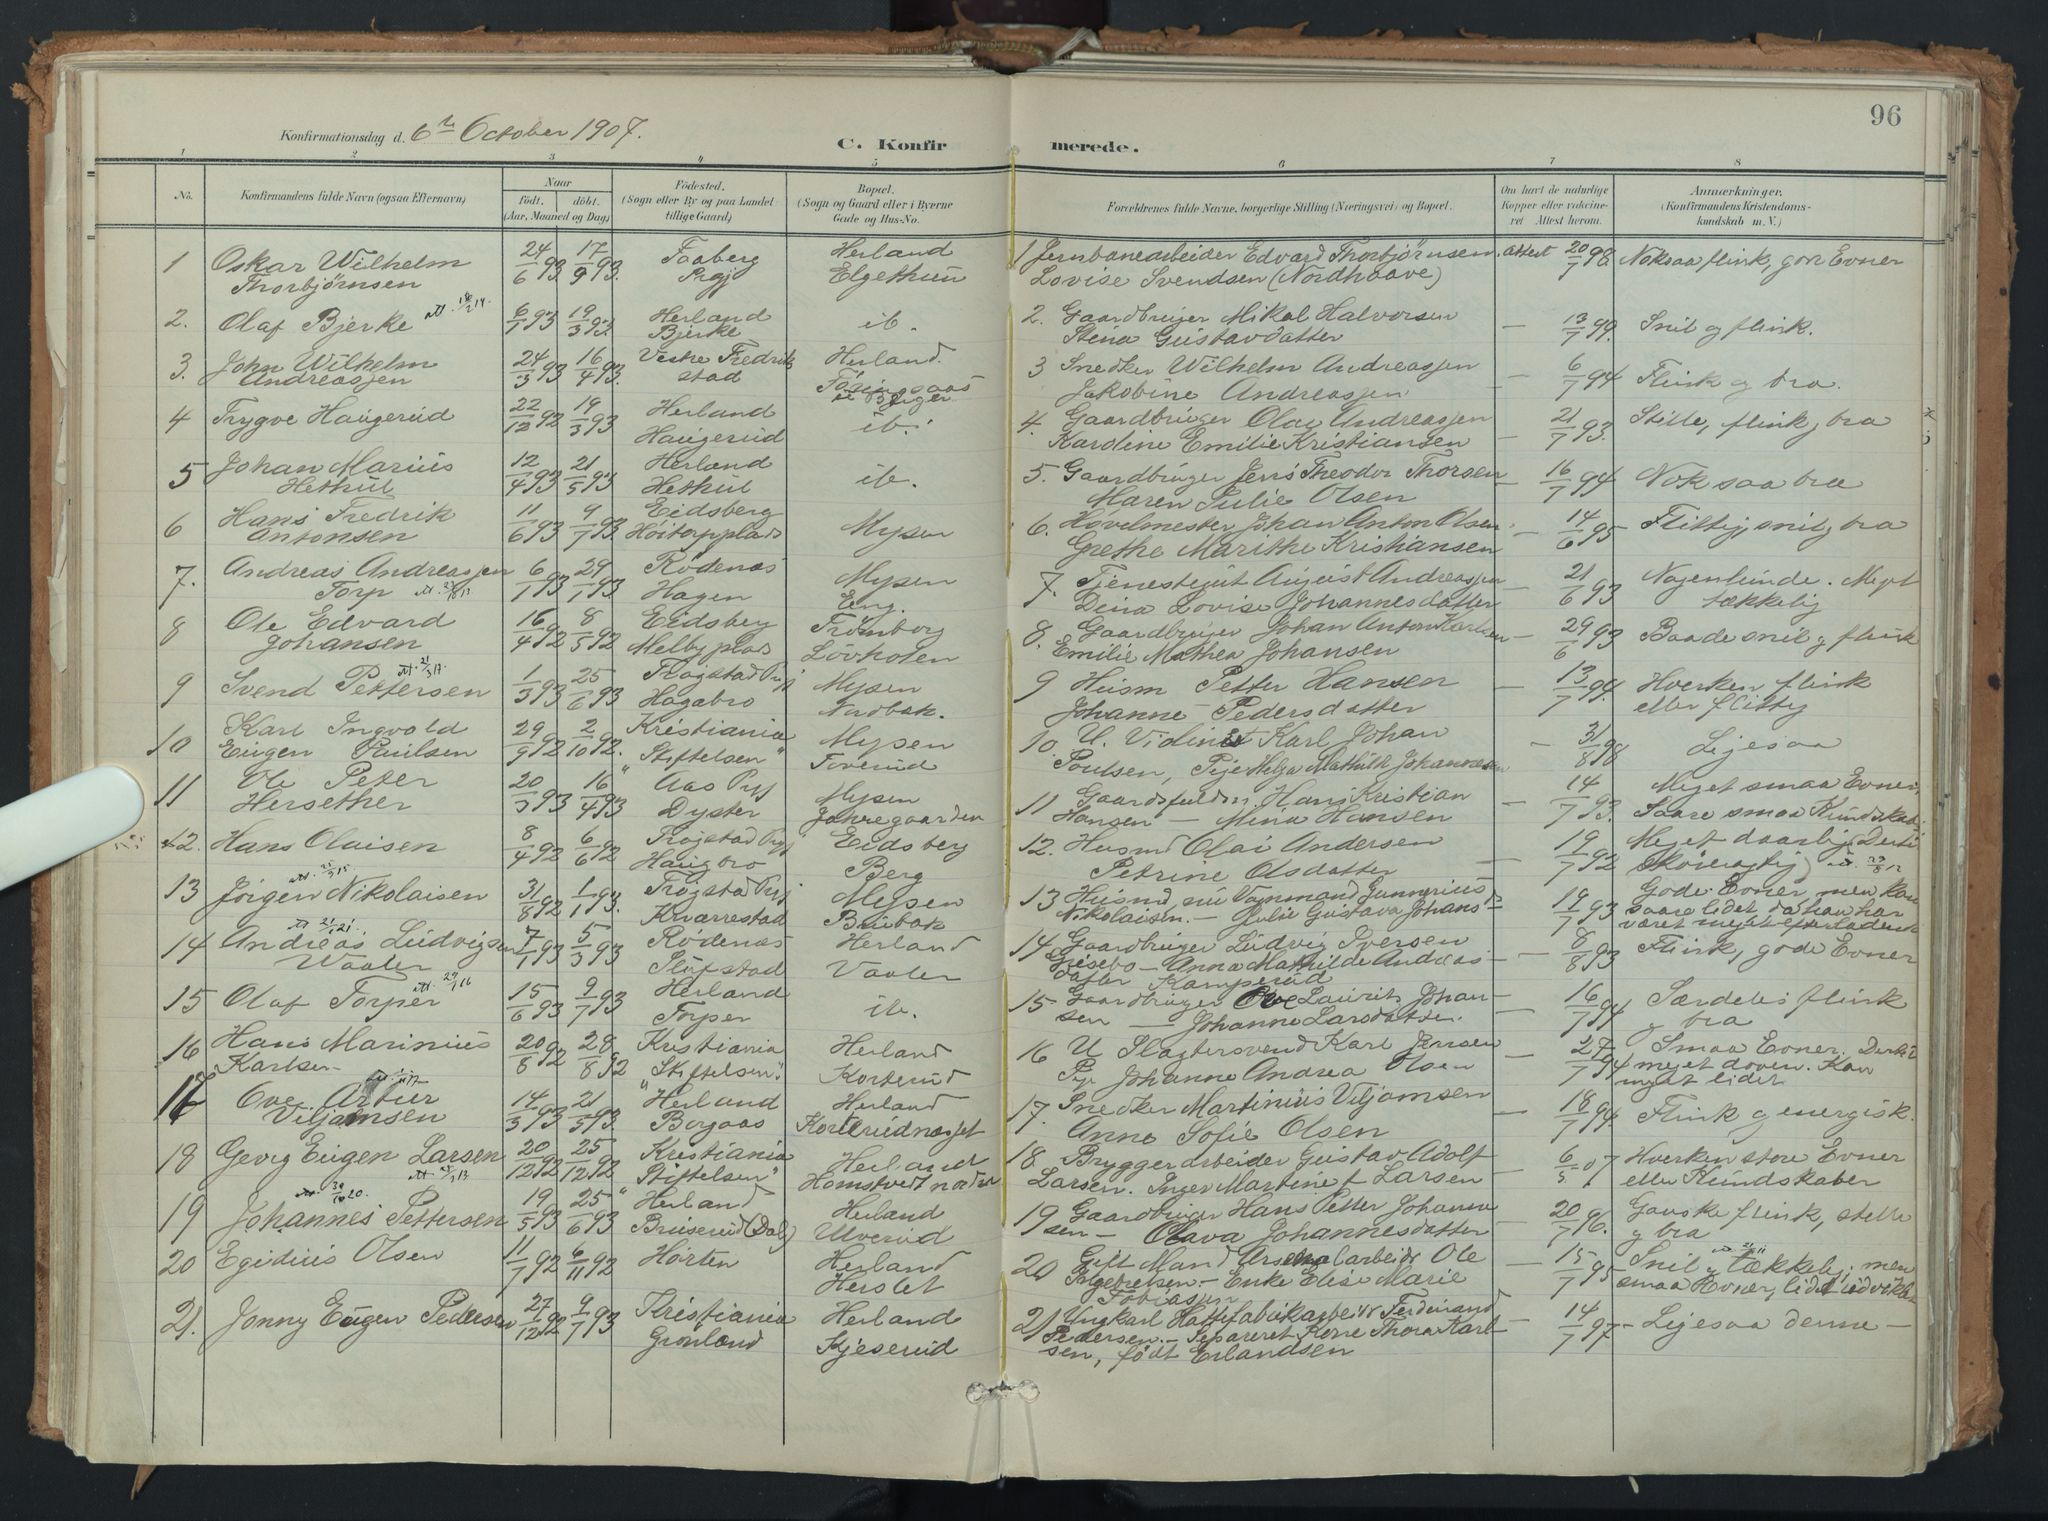 96
Konfirmationsdag d. 6te October 1907.
C. Konfirmerede.
1 2 3 4 5 6 7 8
No. Konfirmandens fulde Navn (ogsaa Efternavn) Naar født. døbt. (Aar, Maaned og Dag) Fødested. (Sogn eller By og paa Landet tillige Gaard) Bopæl. (Sogn og Gaard eller i Byerne Gade og Hus-No. Forældrenes fulde Navne, borgerlige Stilling (Næringsvei) og Bopæl. Om havt de naturlige Kopper eller vaccineret Attest herom. Anmærkninger. (Konfirmandens Kristendomskundskab m. V.)
1 Oskar Wilhelm 24/6 93 17/9 93 Faaberg Herland 1 Jernbanearbeider Edvard Thorbjørnsen attest 20/7 98 Noksaa flink, gode Evner
Thorbjørnsen Prgj Elgethun Lovise Svendsen (Nordhaave)
2. Olaf Bjerke 6/1 93 19/3 93 Herland ib. 2. Gaardbruger Mikal Halvorsen — 13/7 99. Snil og flink.
Bjerke Stina Gustavdatter
3. John Wilhelm 24/3 93 16/4 93. Vestre Fredrik Herland 3 Snedker Wilhelm Andreassen — 6/7 94 Flink og bra.
Andreassen stad Jakobine Andreassen
4 Trygve Haugerud 22/12 92 19/3 93 Herland ib. 4. Gaardbruger Olav Andreassen — 21/7 93. Stille, flink, bra
Haugerud Karoline Emilie Kristiansen
5 Johan Marius 12/4 93 21/5 93 Herland ib. 5. Gaardbruger Jens Theodor Thorsen — 16/7 94 Nok saa bra
Hethul Hethul Maren Julie Olsen
6 Hans Fredrik 11/6 93 9/7 93 Eidsberg Mysen 6. Høvelmester Johan Anton Olsen — 14/6 95 Flittig, snil, bra
Antonsen Høitorpplads Grethe Marithe Kristiansen
7. Andreas Andreassen 6/1 93 29/1 93 Rødenæs Mysen 7. Tjenestegut August Andreassen 21/6 93 Nogenlunde. Meget
Torp Hagen Eng. Dina Lovise Johannesdatter tækkelig
8 Ole Edvard 16/4 92 8/5 92 Eidsberg Trømborg 8. Gaardbruger Johan Anton Karlsen — 29/6 93 Baade snil og flink
Johansen Melbyplads Løvholen Emilie Mathea Johansen
9 Svend Pettersen 1/3 93 25/6 93 Trøgstad Prgj Mysen 9 Husm Petter Hansen — 13/7 94. Hverken flink
Hagabro Nordbak. Johanne Pedersdatter eller flittig
10 Karl Ingvold 29/9 92 2/10 92. Kristiania Mysen 10. U. Karl Johan — 31/8 98 Ligesaa
Eugen Paulsen "Stiftelsen" Toverud Poulsen, Pige Helga Mathilde Johannessen
11 Ole Peter 20/3 93 16/4 93 Aas Prgj Mysen 11 Gaardsfuldm. Hans Kristian — 14/7 93. Meget smaa Evner.
Hersether Dyster Jahregaarden Hansen — Mina Hansen Saare smaa Kundskab.
12. Hans Olaisen 8/4 92 6/6 92 Trøgstad Prgj Eidsberg 12. Husmd Olai Andersen — 19/7 92 Meget daarlig (Dertil
Haugbro Berg Petrine Olsdatter skøieragtig)
13 Jørgen Nikolaisen 31/8 92 1/1 93. Trøgstad Prgj Mysen 13 Husmd nu Vognmand Gunnerius — 19/7 93 Gode Evner men kan
Kværrestad Bribak Nikolaisen. — Julie Gustava Johans saare lidet da han har
været meget efterladende
14 Andreas Ludvigsen 7/1 93 5/3 93 Rødenæs Herland 14 Gaardbruger Ludvig Iversen — 8/8 93 Flink, gode Evner
Vaaler Slupstad Vaaler Grisebo — Anna Mathilde Andreas
datter Kamperud
15 Olaf Torper 15/6 93 9/7 93 Herland ib. 15 Gaardbruger Ole Laurits Johan — 16/7 94 Særdeles flink
Torper sen — Johanne Larsdatter. og bra
16 Hans Marinius 20/8 92 28/8 92 Kristiania Herland 16 U Slagtersvend Karl Jensen — 27/7 94 Smaa Evner. Dertil
Karlsen "Stiftelsen" Korterud Pige Johanne Andrea Olsen meget doven. Kan
meget lidet
17 Ove Artur 14/3 93 21/5 93 Herland Herland 17. Snedker Martinius Viljamsen — 18/7 94 Flink og energisk.
Viljamsen Borgaas Korterudnæsset Anne Sofie Olsen
18 Georg Eugen Larsen 20/12 92 25/12 92 Kristiania Herland 18 Bryggerarbeider Gustav Adolf — 6/5 07 Hverken store Evner
Stiftelsen" Homstvedt nordre Larsen. Inger Martine f Larsen eller Kundskaber
19 Johannes Pettersen 19/5 93 25/6 93 Herland Herland 19 Gaardbruger Hans Petter Johanne — 20/7 96. Ganske flink, stille
Bruserud (Dal) Ulverud sen — Olava Johannesdatter og bra
20 Egidius Olsen 11/7 92 6/11 92 Horten Herland 20 Gift Mand Arsenalarbeider Ole — 15/7 95 Snil og tækkelig; men
Herslet Ingebretsen. — Enke Elise Marie smaa Evner,
Tobiassen
21. Jonny Eugen Pedersen 27/12 92 9/7 93 Kristiania Herland 21 Ungkarl Hattefabrikarbeider Ferdinand — 14/7 97 — Ligesaa denne —
Grønland Kjeserud Pedersen. — Separeret Kone Thora Karl
sen, født Erlandsen